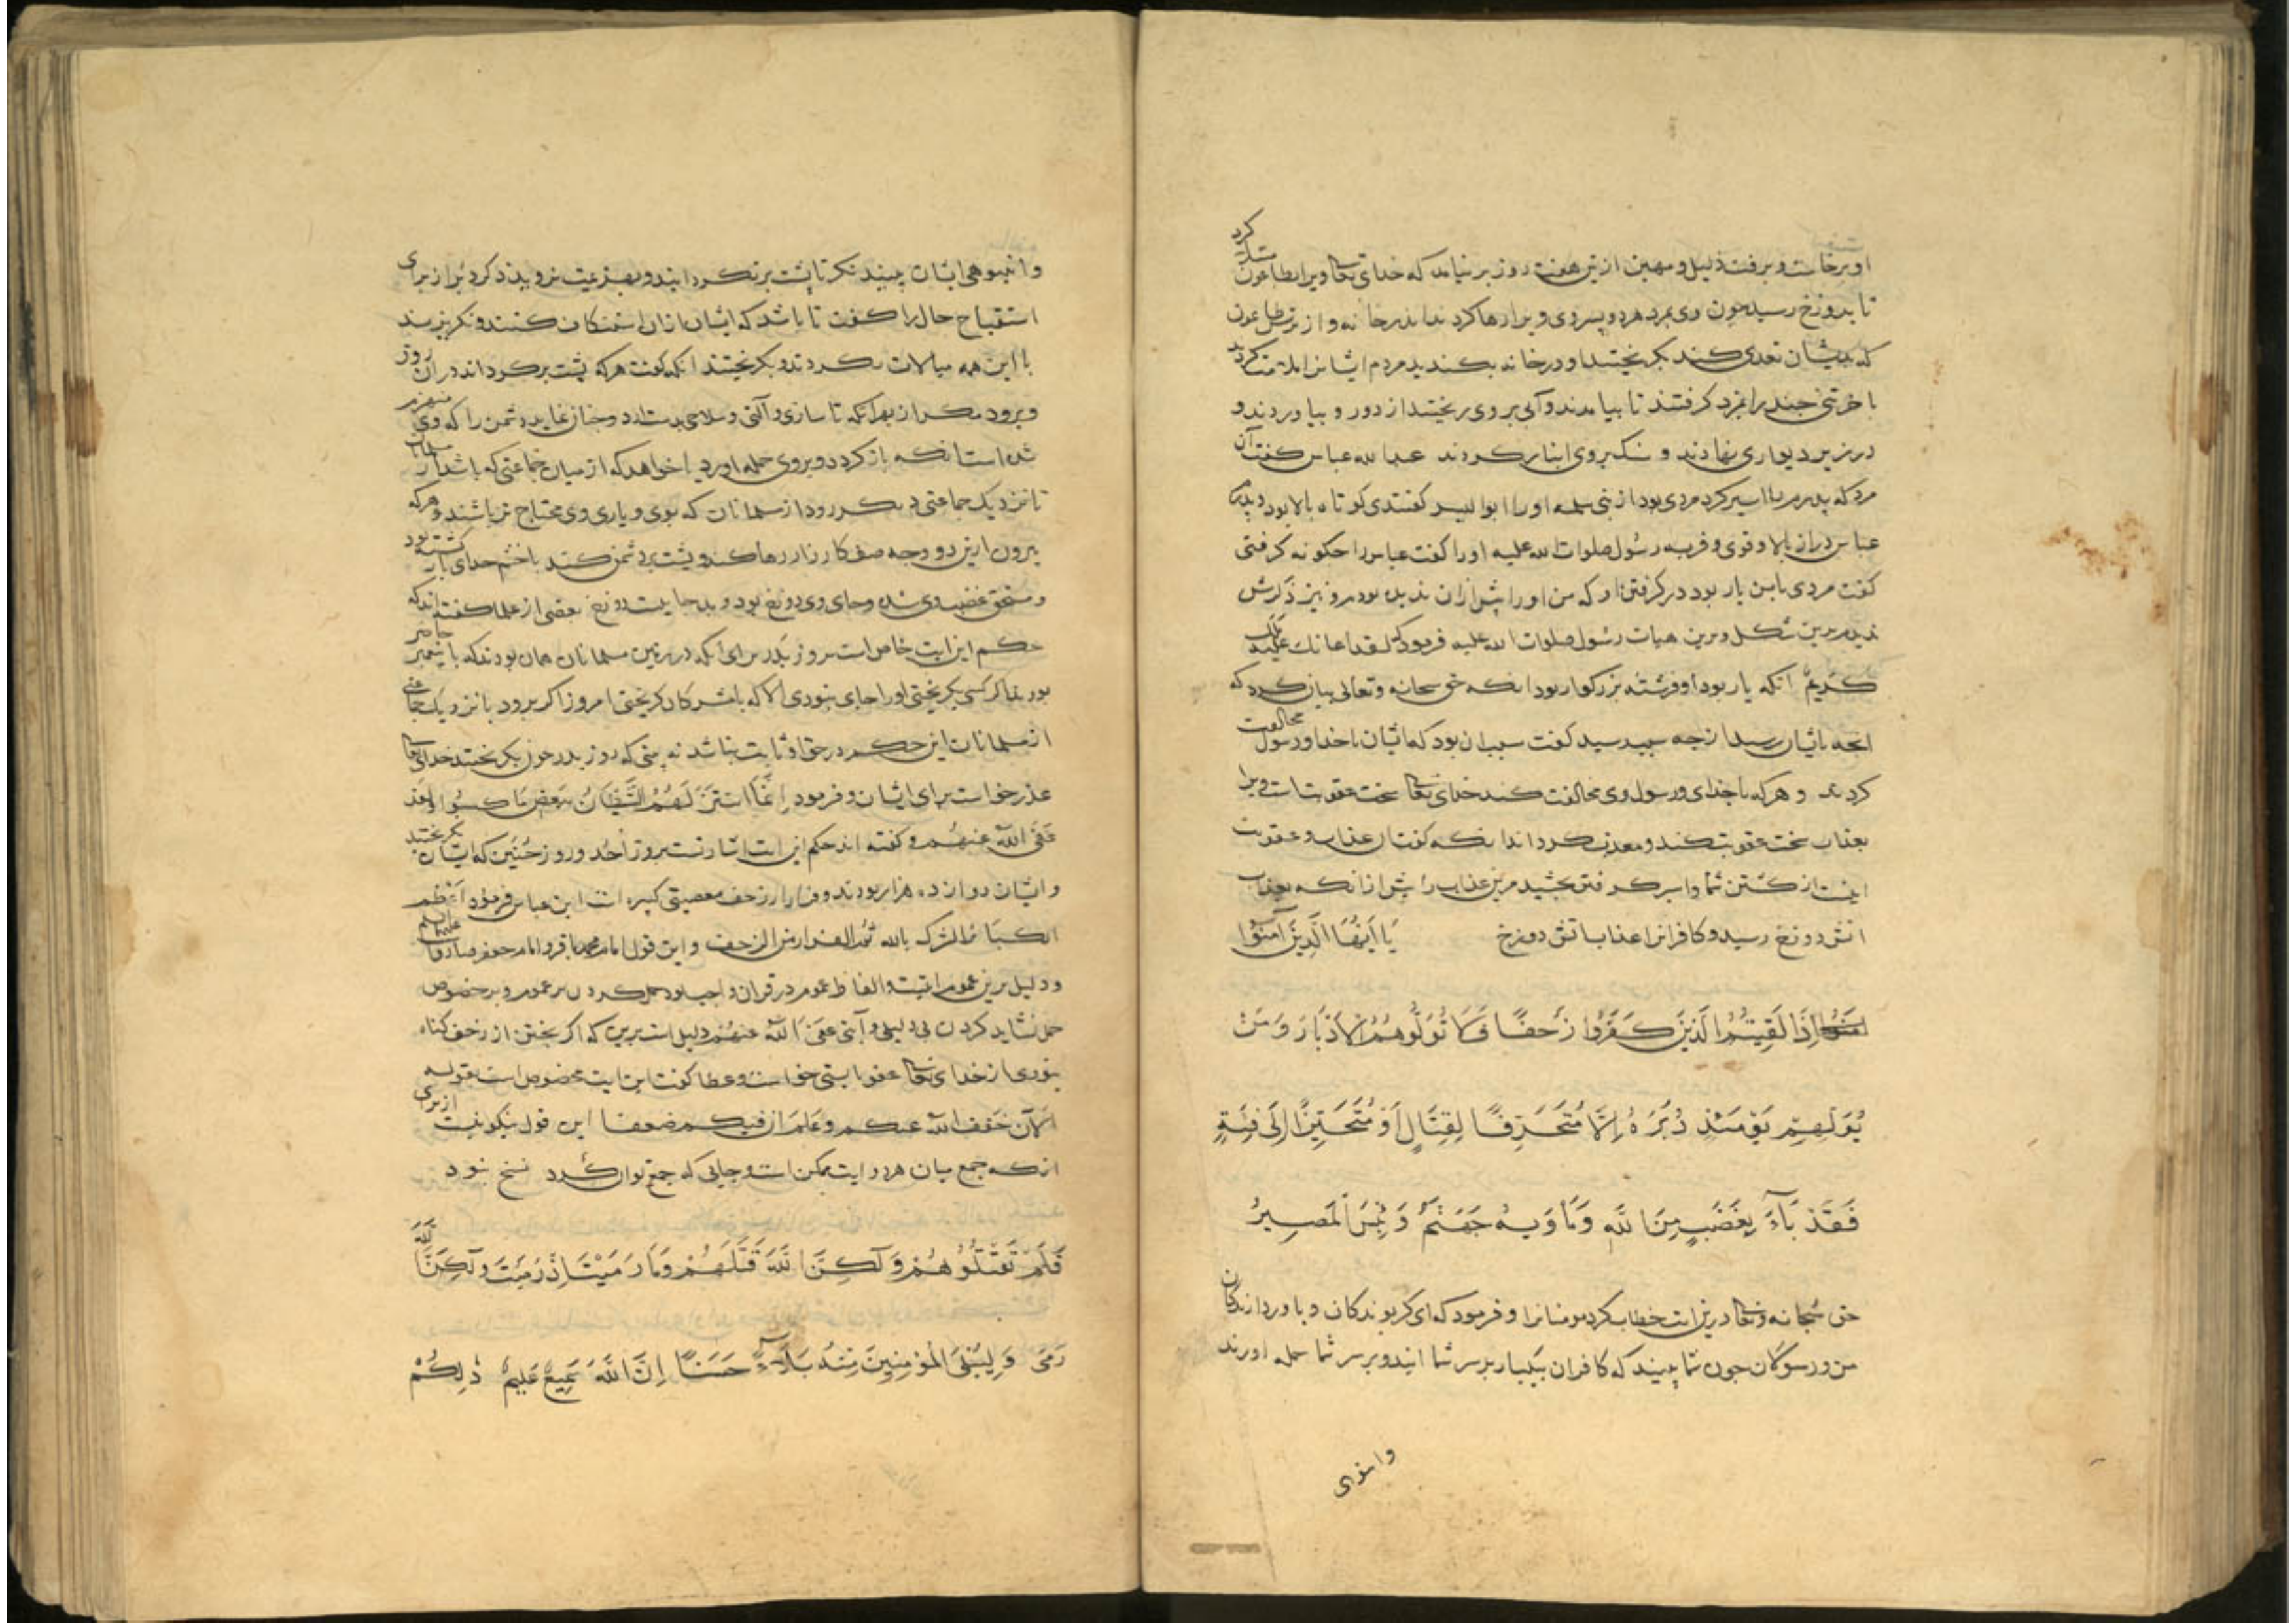 او برخاست و برفت ذلیل و مهین ازین هفت روز برنیامد که خدای تعالی ویرا بطاعون مبتلا کرد
تا بدوزخ رسید چون وی بمرد هر دو پسر وی ویرا رها کردند اندر خانه و از ترس طاعون
که بدیشان تعدی کند بگریختند او در خانه بکندید مردم ایشانرا ملامت کردند
باخر تنی چند را بمزد کرفتند تا بیامدند و آبی بر وی ریختند از دور و بیاوردند و
در زیر دیواری نهادند و سنک بر وی انبار کردند عبدالله عباس کفت آن
مرد که پدرم را اسیر کرد مردی بود از بنی سلمه او را ابوالیسر کفتندی کوتاه بالا بود و پدرم
عباس دراز بالا و قوی و فربه رسول صلوات الله علیه او را کفت عباس را چکونه کرفتی
کفت مردی با من یار بود در کرفتن او که من او را پیش ازان ندیده بودم و نیز دکرش
ندیدم برین شکل و برین هیات رسول صلوات الله علیه فرمود که لقد اعانک علیه ملک
کَریمٌ انکه یار بود او فرشته بزرکوار بود انکه حق سبحانه و تعالی بیان کرد که
انچه بایشان رسید از چه سبب رسید کفت سبب ان بود که ایشان با خدا و رسول مخالفت
کردند و هر که با خدای و رسول وی مخالفت کند خدای تعالی سخت عقوبتست ویرا
بعذاب سخت عقوبت کند و معذب کرداند انکه کفت ان عذاب و عقوبت
اینست از کشتن شما و اسیر کرفتن بچشید مرین عذاب را پیش ازانکه بعذاب
اتش دوزخ رسید و کافرانرا عذاب اتش دوزخ یَا اَیُّهَا الَّذِینَ آمَنُوا
اِذَا لَقِیتُمُ الَّذِینَ کَفَرُوا زَحفًا فَلَا تُوَلُّوهُمُ الاَدْبَارَ وَمَنْ
یُوَلِّهِمْ یَوْمَئِذٍ دُبُرَهُ اِلَّا مُتَحَرِّفًا لِقِتَالٍ اَوْ مُتَحَیِّزًا اِلَی فِئَةٍ
فَقَدْ بَآءَ بِغَضَبٍ مِنَ اللَّهِ وَمَأوَیهُ جَهَنَّمُ وَبِئسَ المَصِیرُ
حق سبحانه و تعالی درین ایت خطاب کرد مومنانرا و فرمود که ای کرویدکان و باوردارندکان
من و رسولان چون شما ببینید که کافران بیکبار بر سر شما ایند و بر سر شما حمله اورند
وانبوهی
وانبوهی ایشان ببیند نکر تا پشت برنکردانید و بهزیمت نروید ذکر دبر از برای
استقباح حال را کفت تا باشد که ایشان ازان استنکاف کنند و نکریزند
با این همه مبالات نکردند و بکریختند انکه کفت هر که پشت برکرداند دران روز
و برود مکر از بهر انکه تا سازی و آلتی و سلاحی بدست ارد و چنان نماید دشمن را که وی منهزم
شده است انکه باز کردد و بروی حمله اورد یا خواهد که از میان جماعتی که باشد از مسلمانان
تا نزدیک جماعتی دیکر رود از مسلمانان که بوی و یاری وی محتاج تر باشند و هرکه
بیرون ازین دو وجه صف کارزار رها کند و پشت بدشمن کند با خشم خدای باز کشته بود
و مستحق غضب وی شده و جای وی دوزخ بود و بد جاییست دوزخ بعضی از علما کفته اند که
حکم این ایت خاص است بروز بدر برای انکه در زمین مسلمانان همان بودند که با پیغمبر حاضر
بودند اکر کسی بکریختی او را جای نبودی الا که با مشرکان کریختی امروز اکر برود با نزدیک جماعتی
از مسلمانان این حکم در حق او ثابت نباشد نه بینی که روز بدر چون بکریختند خدای تعالی
عذر خواست برای ایشان و فرمود اِنَّمَا استَزَلَّهُمُ الشَّیطَانُ بِبَعضِ مَا کَسَبُوا وَلَقَد
عَفَی اللّهُ عَنهُم و کفته اند حکم این ایت اشارتست بروز اُحُد و روز حُنَین که ایشان بکریختند
و ایشان دوازده هزار بودند و فرار از زحف معصیتی کبیره است ابن عباس فرمود اَعْظَم
الکبَائرِ الشرک بالله ثُمَّ الفرار من الزحف و این قول امام محمد باقر و امام جعفر صادق علیهما السلم
و دلیل برین عموم ایتست و الفاظ عموم در قران واجب بود حمل کردن بر عموم و بر خصوص
حمل نشاید کردن بی دلیلی و آیتی عَفَی اللّهُ عَنهُم دلیل است برین که اکر بختن از زحف کناه
نبودی از خدای تعالی عفو نبایستی خواست و عطا کفت این ایت مخصوص است بقوله
اَلآنَ خَفَّفَ اللّهُ عنکم وعَلِمَ ان فیکم ضعفا این قول نیکو نیست از برای
انکه جمع میان هر دو ایت ممکن است و جایی که جمع توان کرد نسخ نبود
فَلَمْ تَقْتُلُوهُمْ وَلَکِنَّ اللّهَ قَتَلَهُمْ وَمَا رَمَیْتَ اِذْ رَمَیْتَ وَلَکِنَّ اللّهَ
رَمَی وَلِیُبْلِیَ المُؤمِنِینَ مِنْهُ بَلآءً حَسَنًا اِنَّ اللّهَ سَمِیعٌ عَلِیمٌ ذٰلِکُمْ